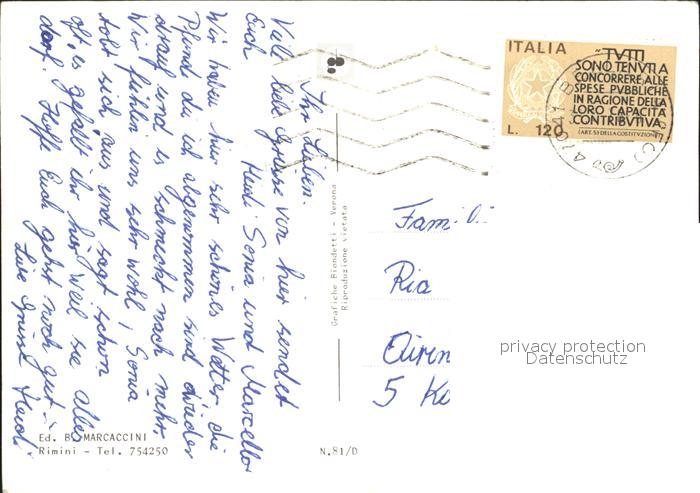 Ihr Lieben.
Viel liebe Grüsse von hier sendet
Euch Heidi Sonia und Marcello
Wir haben hier sehr schönes Wetter, die
Pfund die ich abgenommen sind wieder
drauf und es schmeckt nach mehr.
Wir fühlen uns sehr wohl, Sonia
tobt sich aus und sagt schon
oft, es gefällt ihr hier Weil sie alles
darf. Hoffe Euch gehts noch gut
Liebe Grüsse Heidi
Grafiche Biondetti - Verona
Riproduzione vietata
ITALIA
TVTTI
SONO TENVTI A
CONCORRERE ALLE
SPESE PVBBLICHE
IN RAGIONE DELLA
LORO CAPACITÀ
CONTRIBVTIVA
(ART. 53 DELLA COSTITUZIONE)
L. 120
Famili
Ria
5 Kö
privacy protection
Datenschutz
Ed. B. MARCACCINI
Rimini - Tel. 754250
N.81/D